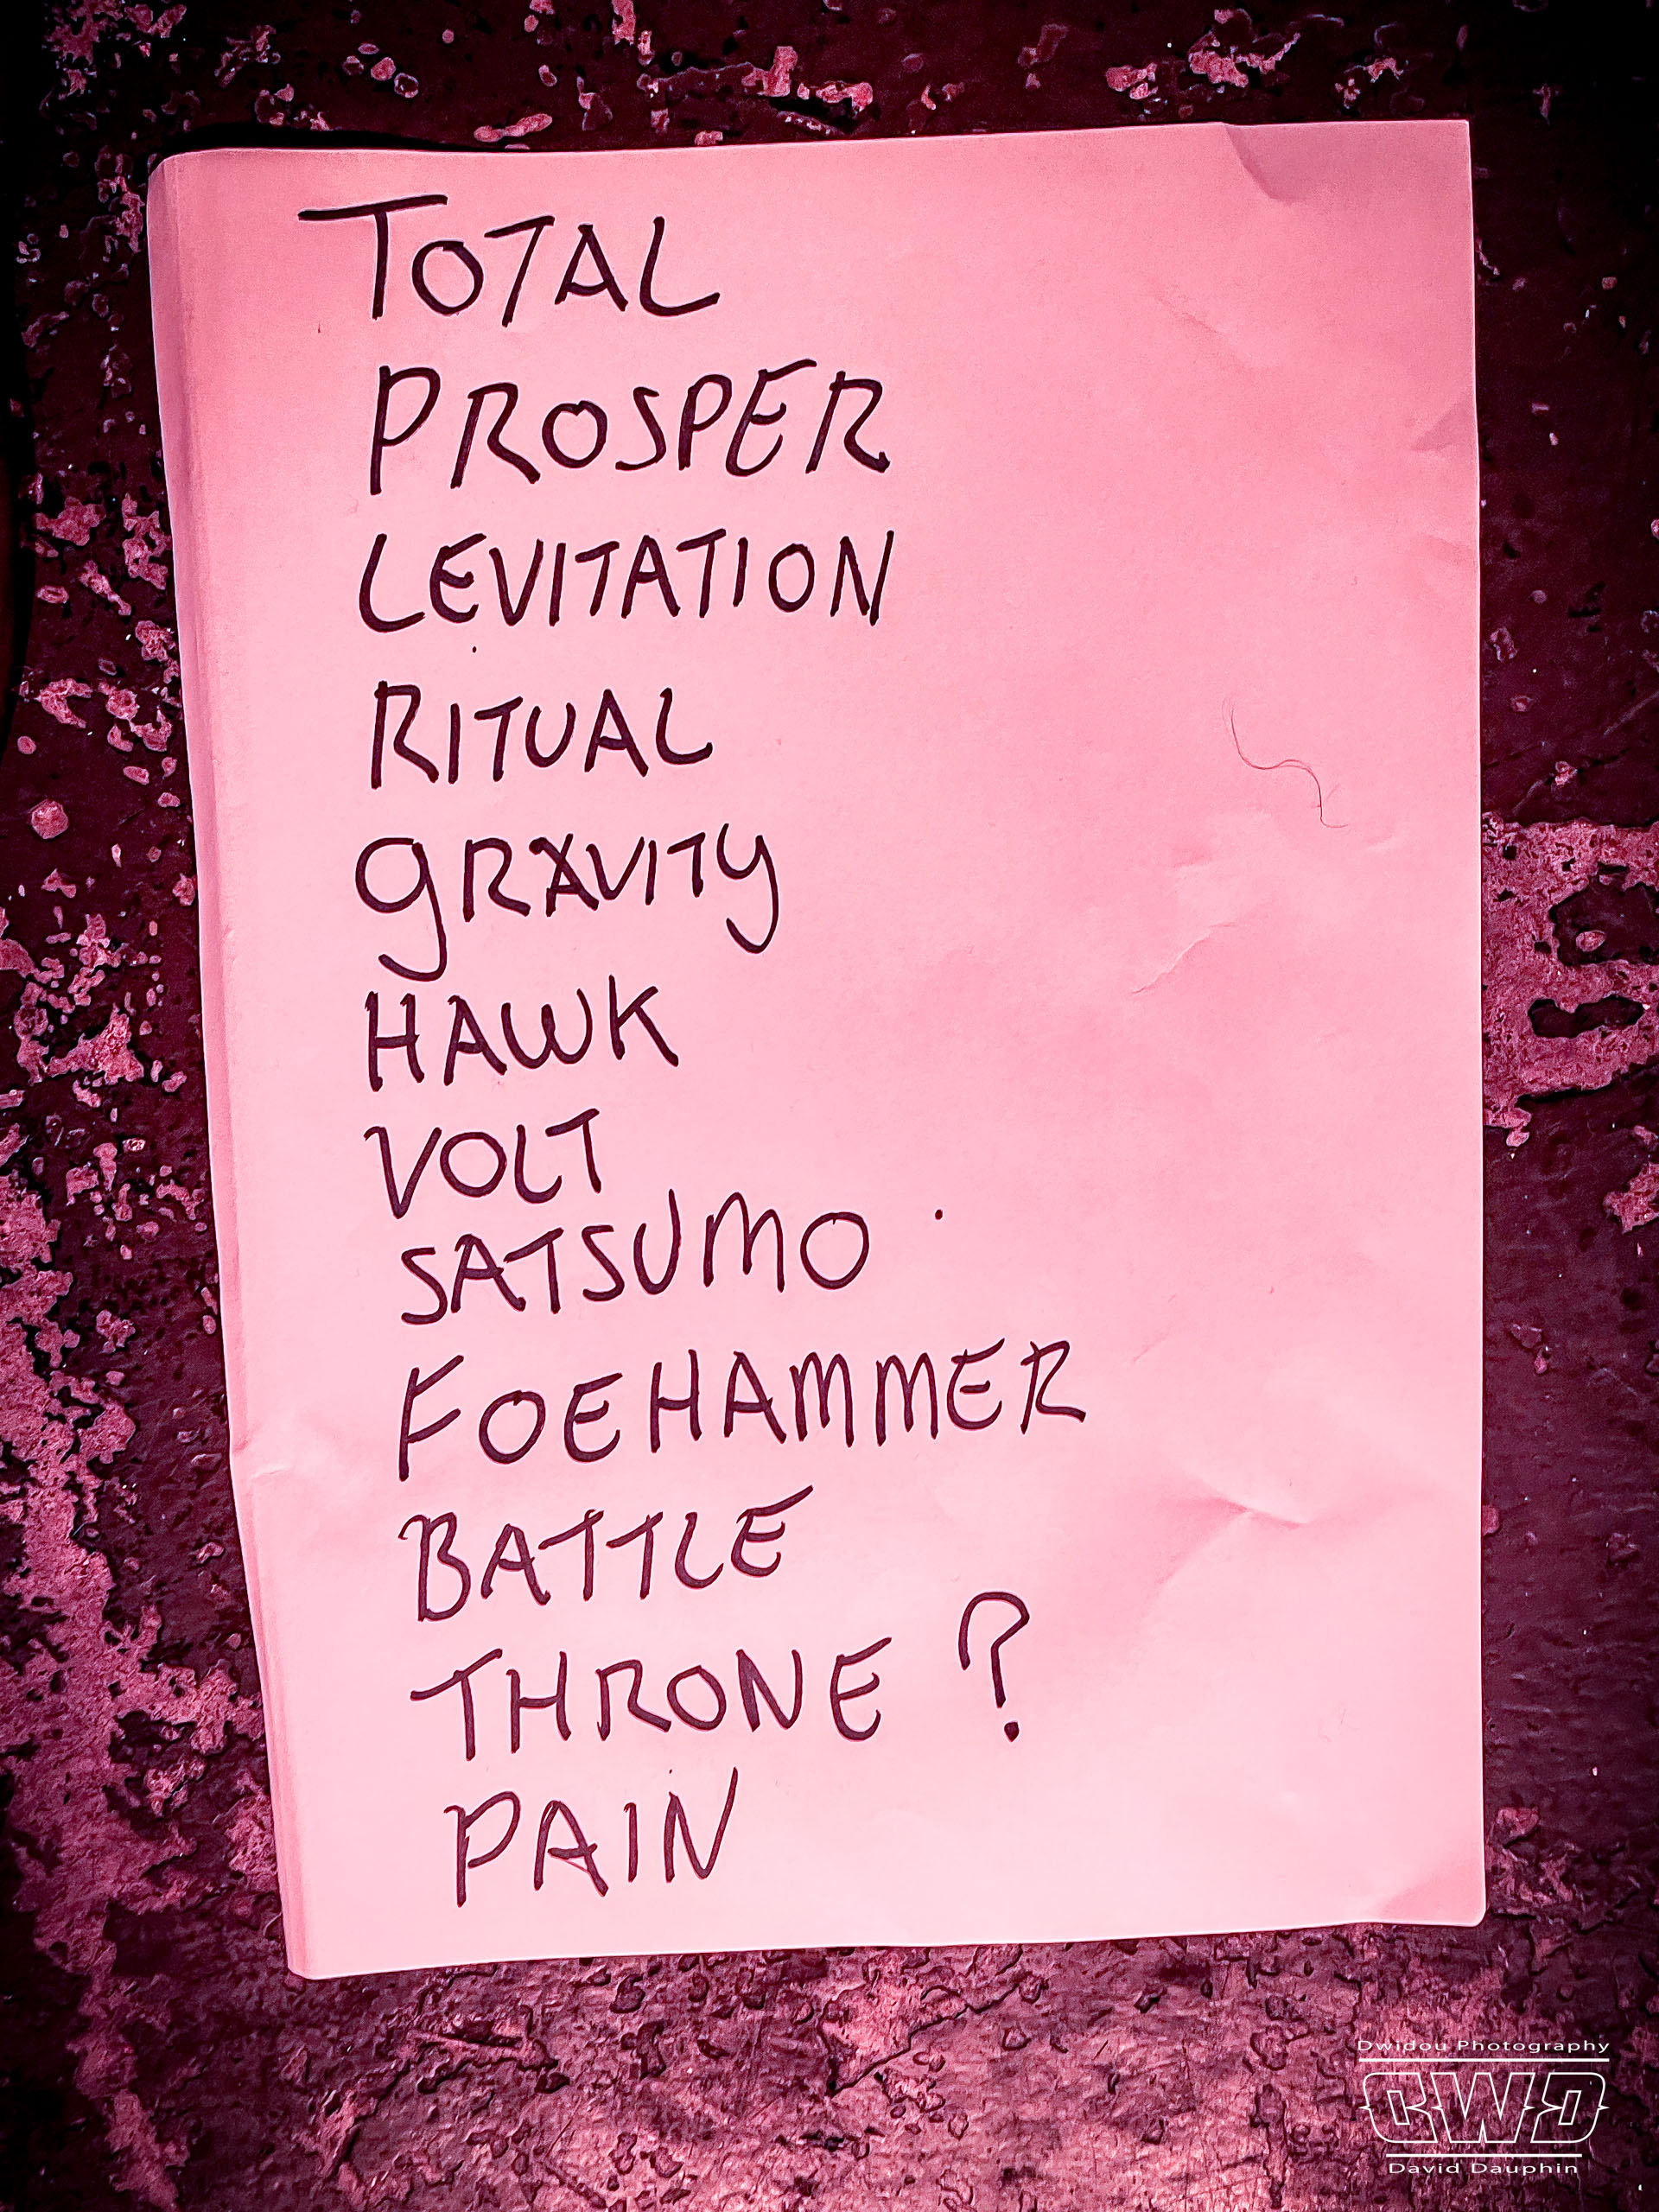 TOTAL
PROSPER
LEVITATION
RITUAL
GRAVITY
HAWK
VOLT
SATSUMO
FOEHAMMER
BATTLE
THRONE ?
PAIN
Dwidou Photography
DWD
David Dauphin